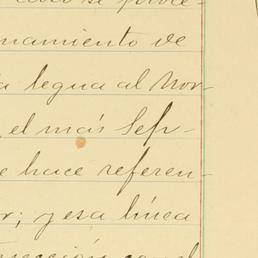 namiento de
a legua al Nor-
el más Sep-
e hace referen-
r; y esa línea